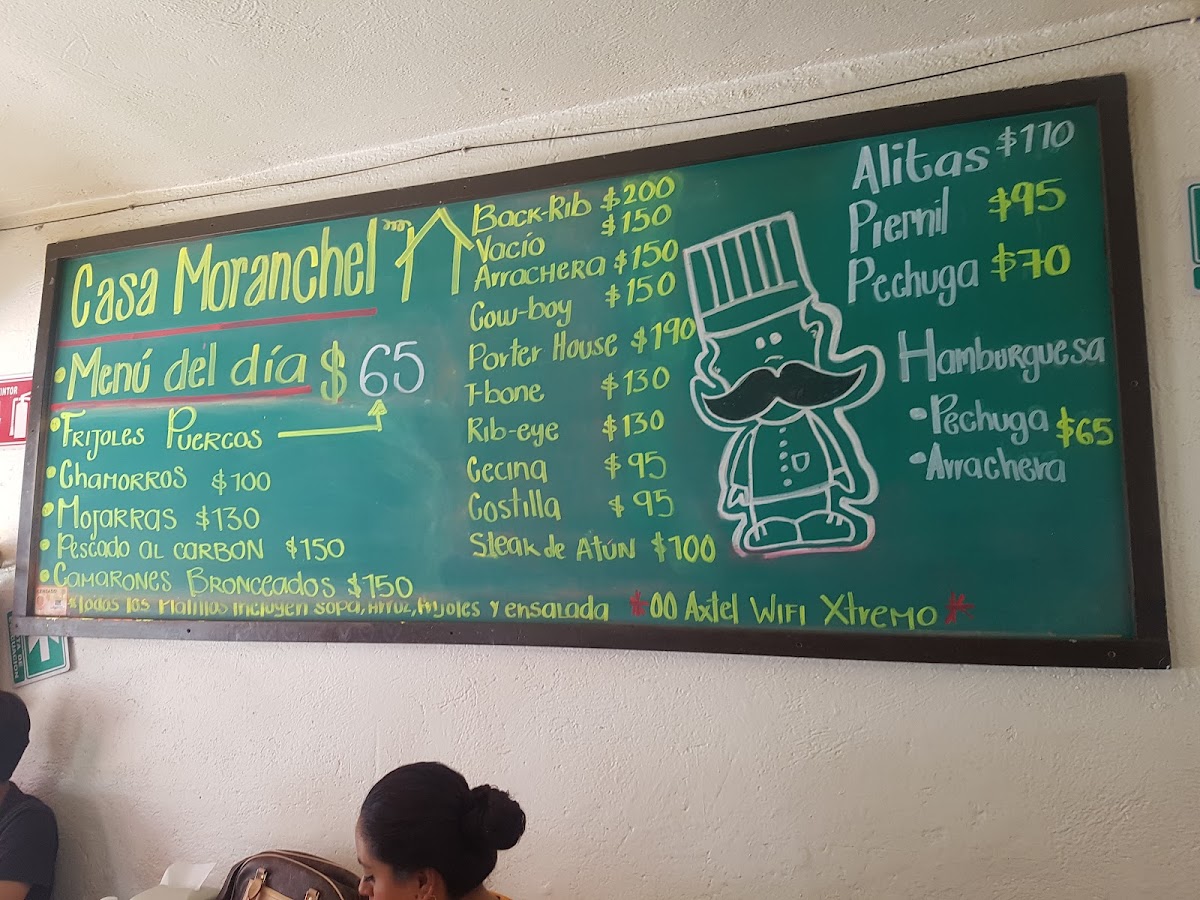 Casa Moranchel
• Menú del día $ 65
• Frijoles Puercos
• Chamorros $100
• Mojarras $130
• Pescado al carbón $150
• Camarones Bronceados $150
Todos los Platillos incluyen sopa, Arroz, frijoles y ensalada
Back-Rib $200
Vacío $150
Arrachera $150
Cow-boy $150
Porter House $190
T-bone $130
Rib-eye $130
Cecina $95
Costilla $95
Steak de Atún $100
Alitas $110
Piernil $95
Pechuga $70
Hamburguesa
• Pechuga $65
• Arrachera
*00 Axtel WIFI Xtremo*